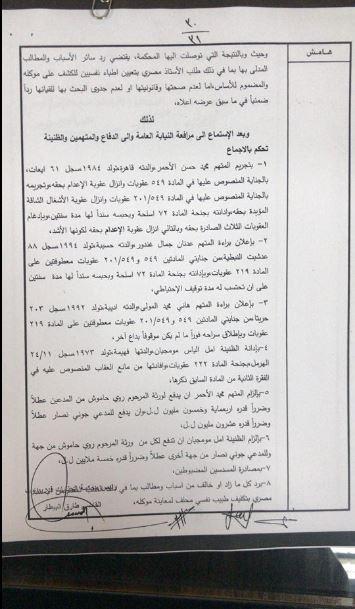 ٣٠
٣١
هامش
وحيث وبالنتيجة التي توصلت اليها المحكمة، يقتضي رد سائر الأسباب والمطالب
المدلى بها بما في ذلك طلب الأستاذ مصري بتعيين اطباء نفسيين للكشف على موكله
والمضموم للأساس، اما لعدم صحتها وقانونيتها او لعدم جدوى البحث بها للقيانها رداً
ضمنياً في ما سبق عرضه اعلاه،
لذلك
وبعد الإستماع الى مرافعة النيابة العامة والى الدفاع والمتهمين والظنينة
تحكم بالاجماع
١- بتجريم المتهم محمد حسن الأحمر، والدته قاهرة، تولد ١٩٨٤ سجل ٦١ ايعات،
بالجناية المنصوص عليها في المادة ٥٤٩ عقوبات وانزال عقوبة الإعدام بحقه، وتجريمه
بالجناية المنصوص عليها في المادة ٢٠١/٥٤٩ عقوبات وانزال عقوبة الأشغال الشاقة
المؤبدة بحقه، وادانته بجنحة المادة ٧٢ اسلحة وبحبسه سنداً لها مدة سنتين، وبإدغام
العقوبات الثلاث الصادرة بحقه وبالتالي انزال عقوبة الإعدام بحقه لكونها الأشد.
٢- بإعلان براءة المتهم عدنان جمال غندور، والدته حسيبة، تولد ١٩٩٤، سجل ٨٨
النبطية، من جنايتي المادتين ٥٤٩ و ٢٠١/٥٤٩ عقوبات معطوفتين على
المادة ٢١٩ عقوبات، وبإدانته بجنحة المادة ٧٢ اسلحة وبحبسه سنداً لها مدة سنتين
على ان تحتسب له مدة توقيف الإحتياطي.
٣- بإعلان براءة المتهم هاني محمد المولى، والدته انيبة، تولد ١٩٩٢ سجل ٢٠٣
حربتا، من جنايتي المادتين ٥٤٩ و ٢٠١/٥٤٩ عقوبات معطوفتين على المادة ٢١٩
عقوبات، وبإطلاق سراحه فوراً ما لم يكن موقوفاً بداع آخر.
٤- بإدانة الظنينة امل الياس مومجيان، والدتها فهيمة، تولد ١٩٧٣ سجل ٢٤/١١
الهرمل، بجنحة المادة ٢٢٢ عقوبات، وافادتها من مانع العقاب المنصوص عليه في
الفقرة الثانية من المادة السابق ذكرها.
٥- بإلزام المتهم محمد الأحمر ان يدفع لورثة المرحوم روي حاموش من المدعين عطلاً
وضرراً قدره اربعماية وخمسون مليون ل.ل. وان يدفع للمدعي جوني نصار عطلاً
وضرراً قدره عشرون مليون ل.ل.
٦- بإلزام الظنينة امل مومجيان ان تدفع لكل من ورثة المرحوم روي حاموش من جهة
وللمدعي جوني نصار من جهة أخرى عطلاً وضرراً قدره خمسة ملايين ل.ل.
٧- بمصادرة المسدسين المضبوطين.
٨- برد كل ما زاد او خالف من اسباب ومطالب بما في ذلك
مصري بتكليف طبيب نفسي محلف لمعاينة موكله.
طارق البيطار